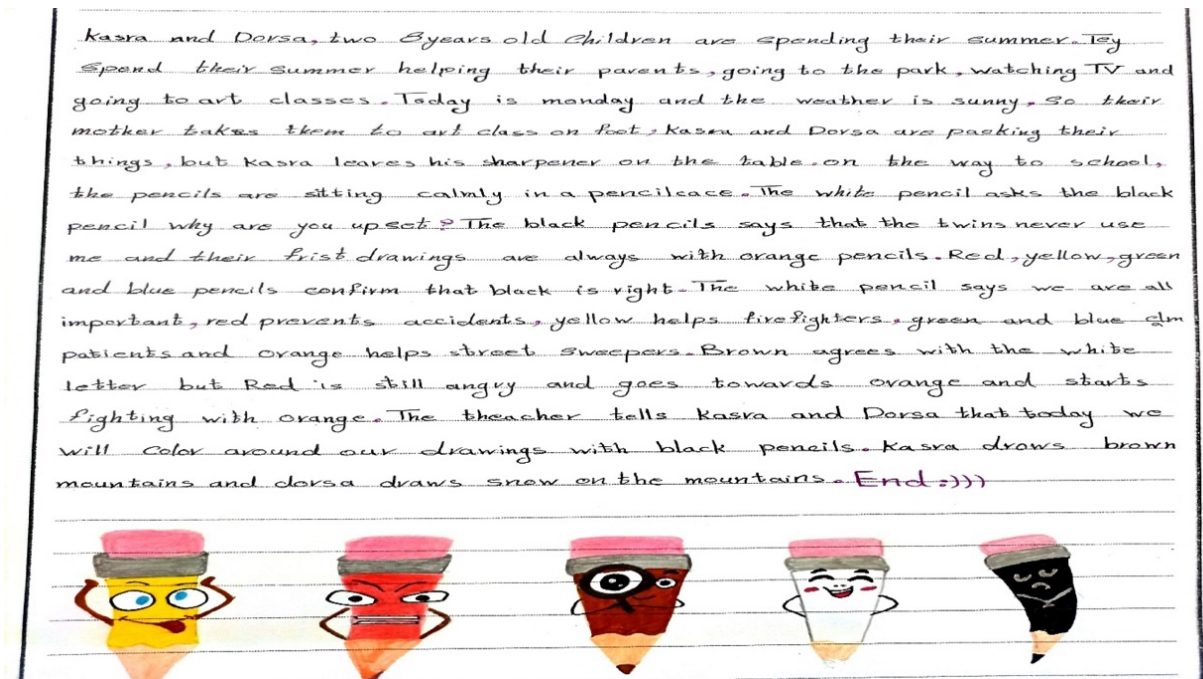 Kasra and Dorsa, two 8years old children are spending their summer. Tey
spend their summer helping their parents, going to the park, watching TV and
going to art classes. Today is monday and the weather is sunny, so their
mother takes them to art class on foot, Kasra and Dorsa are packing their
things, but Kasra leaves his sharpener on the table. on the way to school,
the pencils are sitting calmly in a pencilcace. The white pencil asks the black
pencil why are you upset? The black pencils says that the twins never use
me and their frist drawings are always with orange pencils. Red, yellow, green
and blue pencils confirm that black is right. The white pencil says we are all
important, red prevents accidents, yellow helps firefighters, green and blue clm
patients and orange helps street sweepers. Brown agrees with the white
letter but Red is still angry and goes towards orange and starts
fighting with orange. The theacher tells Kasra and Dorsa that today we
will color around our drawings with black pencils. Kasra draws brown
mountains and dorsa draws snow on the mountains. End :)))